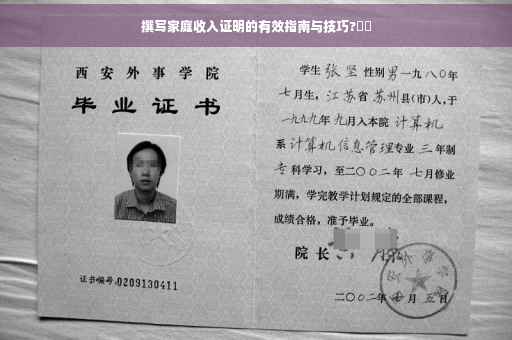 撰写家庭收入证明的有效指南与技巧?
西安外事学院
毕业证书
证书编号:0209130411
学生 张坚 性别 男 一九八〇年
七月生,江苏省 苏州县(市)人,于
一九九九年 九月入本院 计算机
系 计算机信息管理专业 三 年制
专科学习,至二〇〇二年 七月修业
期满,学完教学计划规定的全部课程,
成绩合格,准予毕业。
院长
二〇〇二年 七月 五日